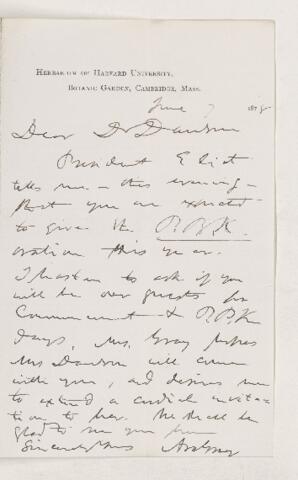 HERBARIUM OF HARVARD UNIVERSITY,
BOTANIC GARDEN, CAMBRIDGE, MASS.
June 7 1878
Dear Dr Dawson
President Eliot
tells me – this evening –
that you are expected
to give the P.B.K.
oration this year.
I hasten to ask if you
will be our guests for
Commencement & P.B.K
days. Mrs. Gray hopes
Mrs Dawson will come
with you, and desires me
to extend a cordial invita-
tion to her. We shall be
glad to see you here
Sincerely Yours Asa Gray